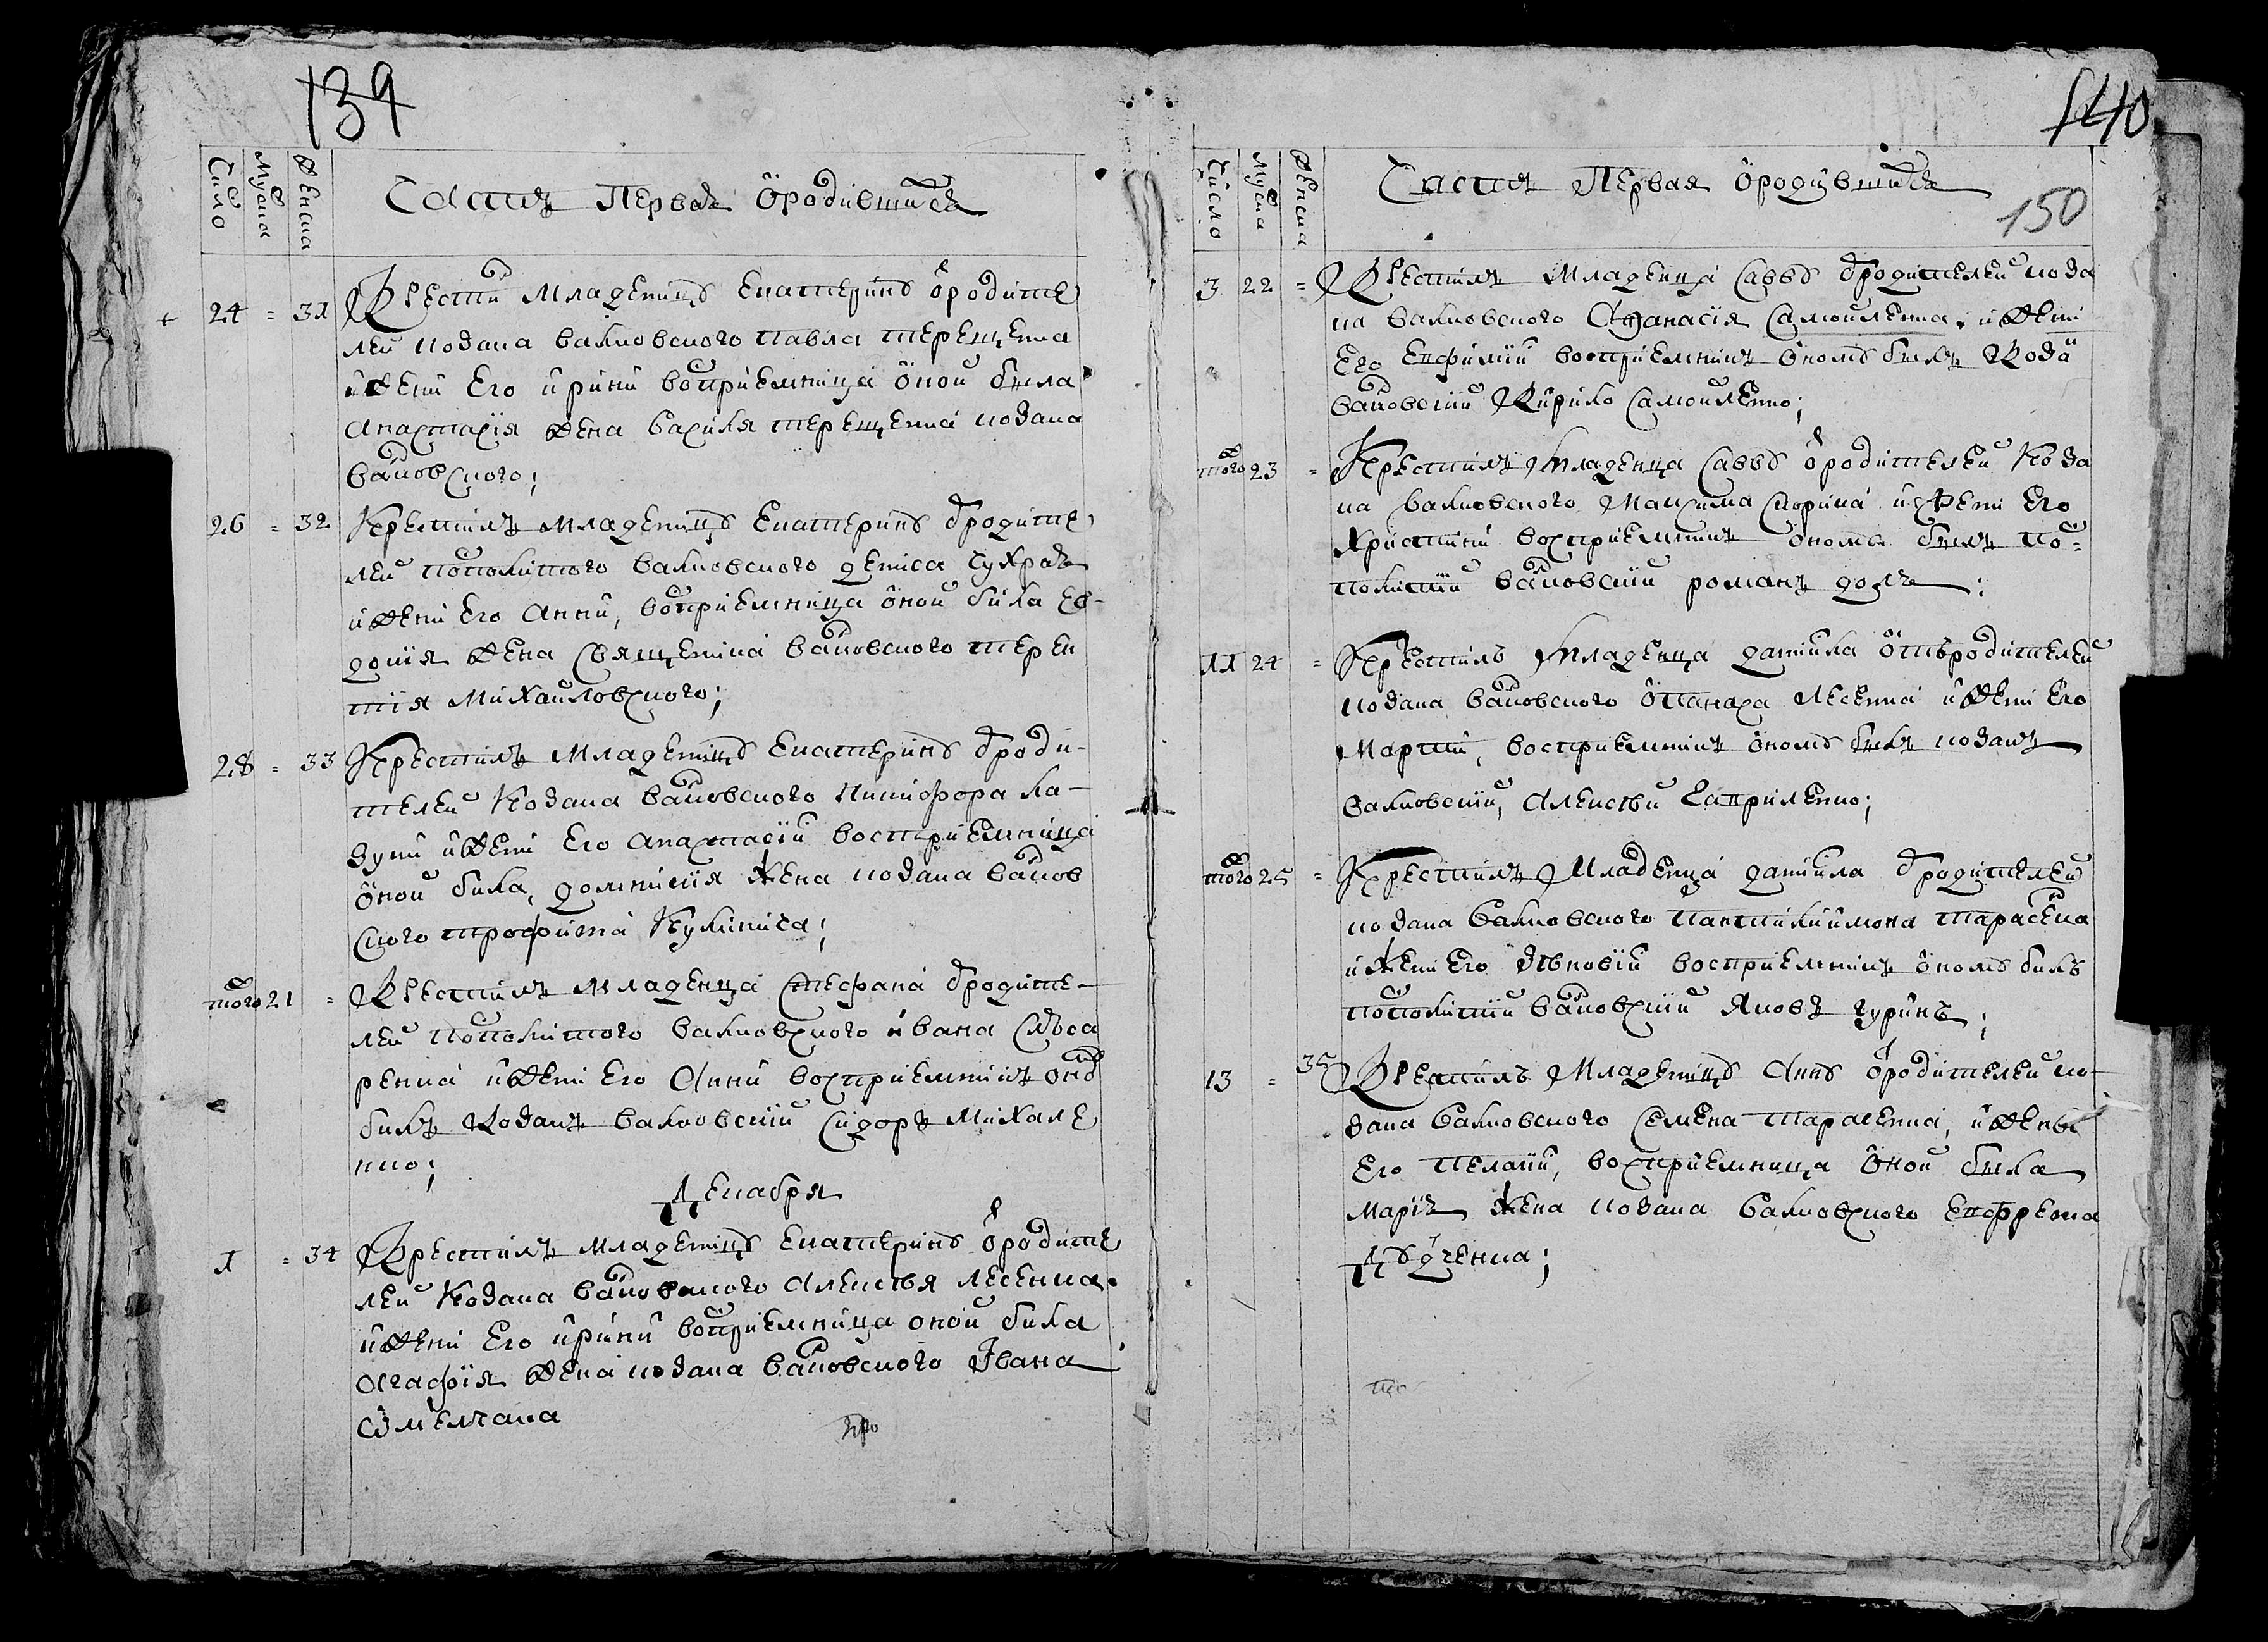 139
Число Мужска Женска
Часть Первая ѻродившихся
24 = 31 Крести младеницѣ Екатеринѣ ѻродите
лей козака валковского павла терещенка
и жени Его ирини воспріемница ѻной была
Анастасія жена василя терещенка козака
валковского;
26 = 32 Крестилъ младеницѣ Екатеринѣ ѻродите
лей посполитого валковского дениса чухрая
и жени Его Анни, воспріемница ѻной била Ев-
докія жена священика валковского терен
тія михайловского;
28 = 33 Крестилъ младеницѣ Екатеринѣ ѻроди-
телей козака валковского никифора ка-
зуни и жени Его анастасіи воспріемница
ѻной била, домникія жена козака валков
ского трофима кулинича;
того 21 = Крестилъ младенца стефана ѻродите-
лей посполитого валковского ивана слюса
ренка и жени Его Анни воспріемникъ оно
билъ козакъ валковскій сидоръ михале
нко;
Декабря
1 = 34 Крестилъ младеницѣ Екатеринѣ ѻродите
лей козака валковского алексѣя лесенка
и жени Его ирини воспріемница оной била
агафія жена козака валковского Івана
омелчака
140
150
Число Мужска Женска
Часть Первая ѻродившихся
3 22 = Крестилъ младенца саввѣ ѻродителей коза
ка валковского Афанасія самойленка, и жени
Его Евфиміи воспріемникъ ѻномѣ былъ коза
валковскій кирило самойленко;
того 23 = Крестилъ младенца саввѣ ѻродителей коза
ка валковского максима скорика и жени Его
христини воспріемникъ ѻномѣ былъ по=
сполитій валковскій романъ
11 24 = Крестилъ младенца даниила ѻтъродителей
козака валковского ѻпанаса лесенка и жени Его
марти, воспріемникъ ѻномѣ былъ козакъ
валковскій, алексѣй гавриленко;
того 25 = Крестилъ младенца даниила ѻродителей
козака валковского пантилиимона тарасенка
и жени Его зѣновіи воспріемникъ ѻномѣ билъ
посполитій валковскій яковъ чуринъ;
13 = 35 Крестилъ младеницѣ аннѣ ѻродителей ко-
зака валковского семена тарасенка, и жены
Его пелагіи, воспріемница ѻной была
маріа жена козака валковского Евфрема
дѣдченка;